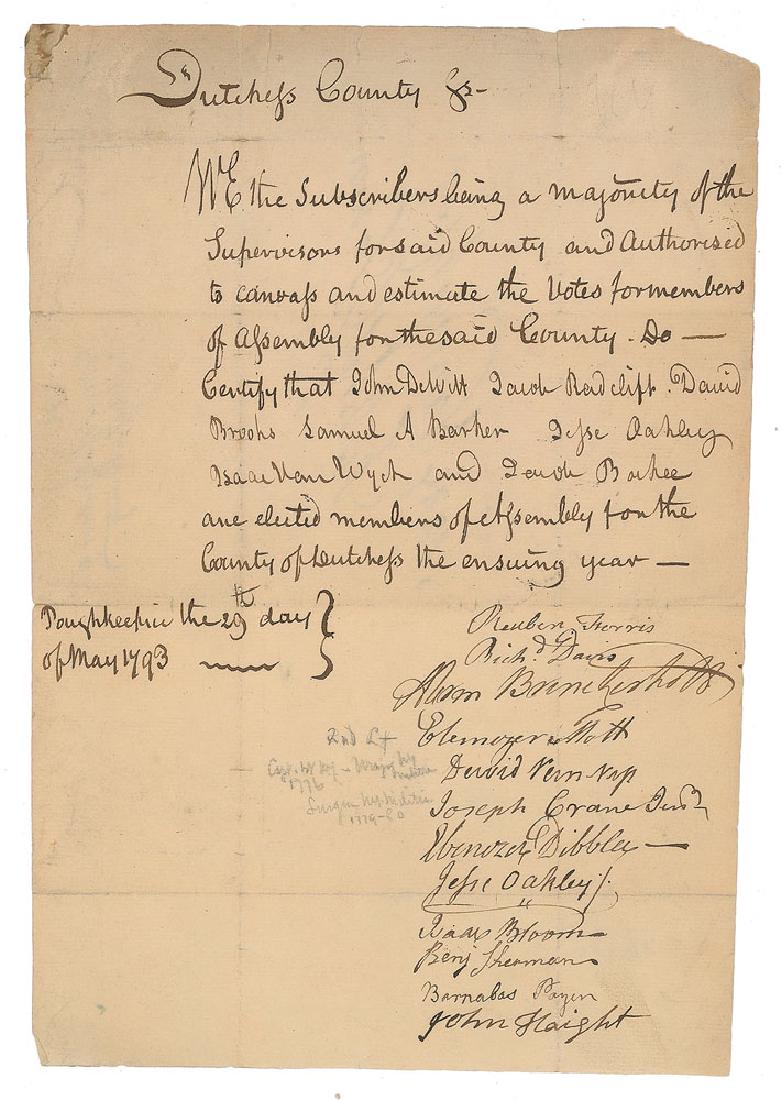 Dutchess County Ss-
WE the Subscribers being a majority of the
Supervisors for said County and Authorised
to canvass and estimate the Votes for members
of Assembly for the said County. Do —
Certify that John DeWitt Jacob Radclift. David
Brooks Samuel A Barker Jesse Oakley
Isaac Van Wyck and Jacob Bockee
are elected members of Assembly for the
County of Dutchess the ensuing year —
Poughkeepsie the 29th day
of May 1793
Reuben Ferris
Richd Davis
Abrm Brinckerhoff
Ebenezer Mott
David Van Nep
Joseph Crane Junr
Ebenezer Dibblee
Jesse Oakley
Isaac Bloom
Benj Sherman
Barnabas Payen
John Haight
2nd Lt
1776
Surgeon NY Militia
1779-80